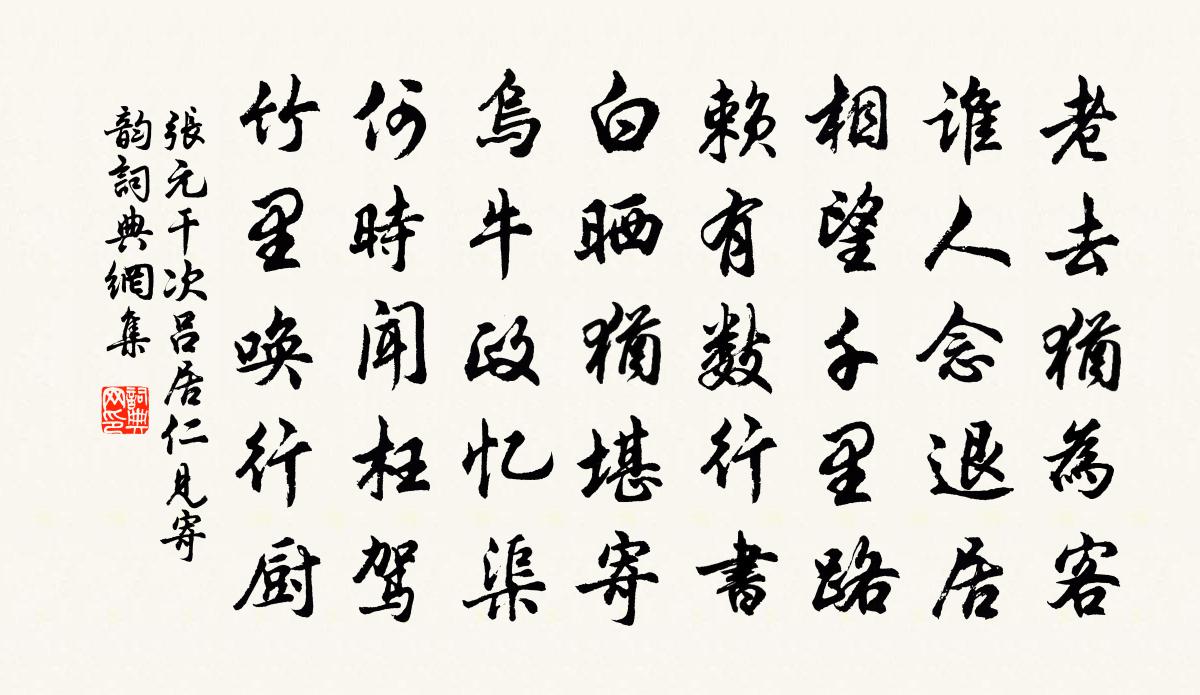 老去猶為客
谁人念退居
相望千里路
赖有数行書
白晒猶堪寄
烏牛政忆渠
何時闻枉驾
竹里唤行厨
張元干次呂居仁見寄
韵詞典網集
詞典
网印